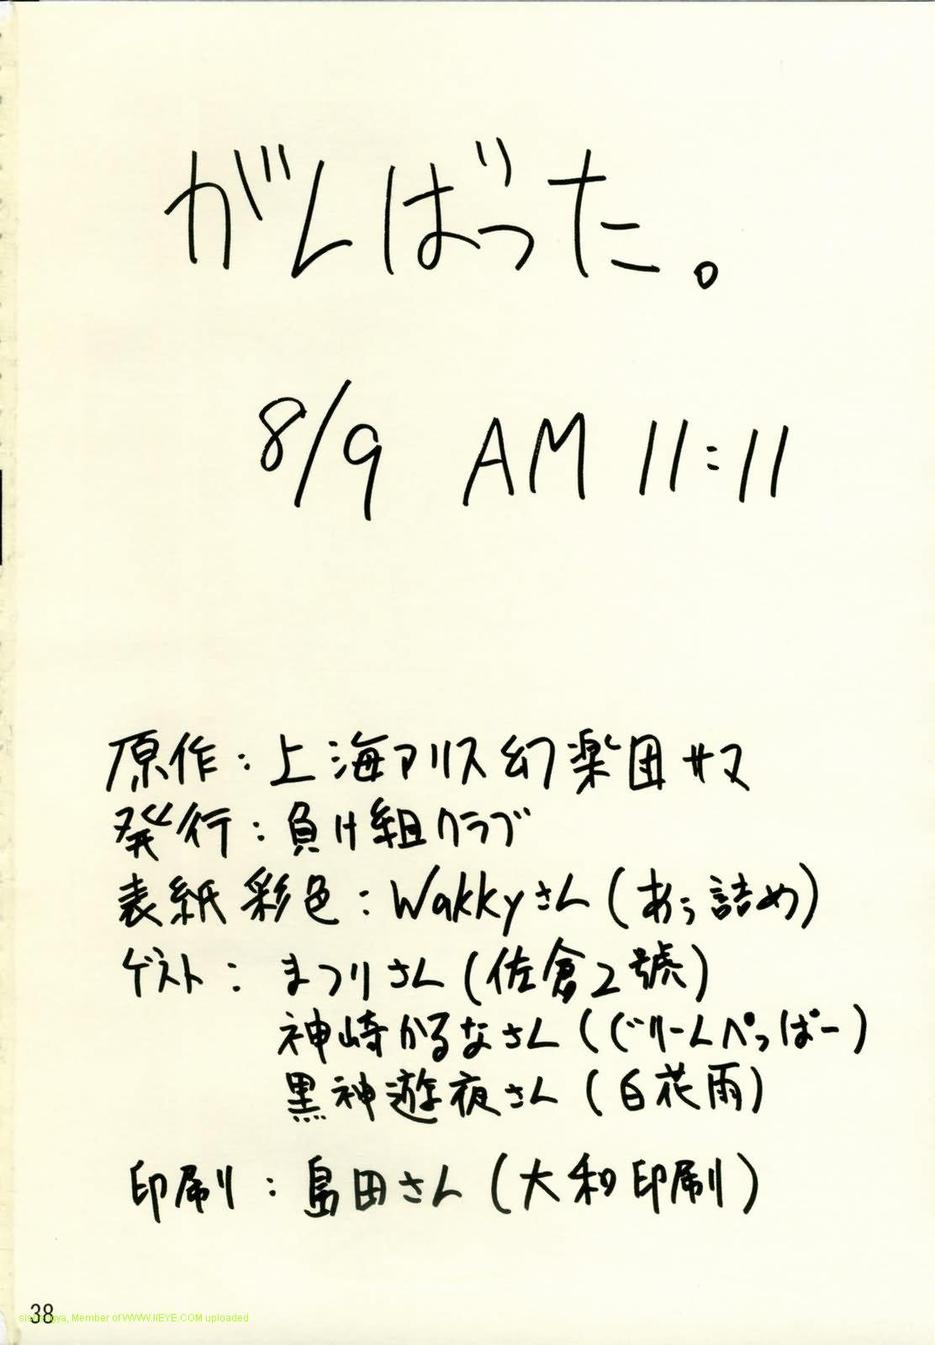 がんばった。
8/9 AM 11:11
原作：上海アリス幻楽団サマ
発行：負け組クラブ
表紙彩色：Wakkyさん（あぅ詰め）
ゲスト：まつりさん（佐倉2號）
神崎かるなさん（ぐりーんぺっぱー）
黒神遊夜さん（白花雨）
印刷：島田さん（大和印刷）
38
Member of WWW.IIEYE.COM uploaded